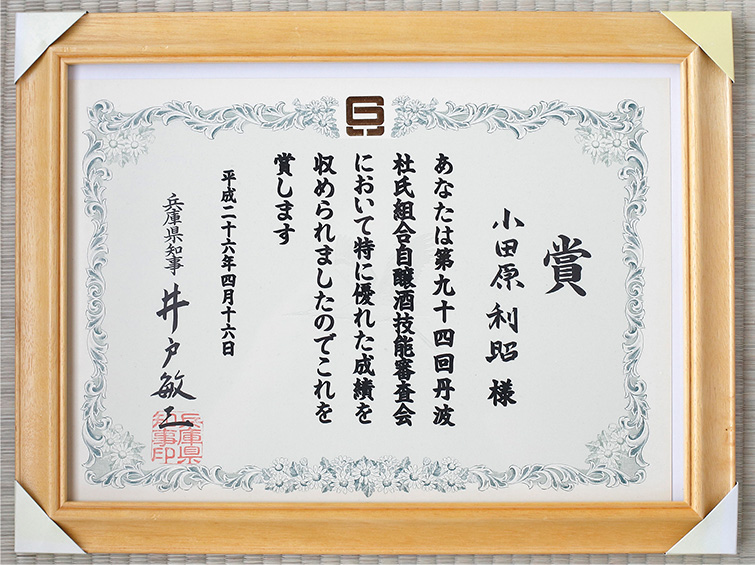 賞
小田原利昭様
あなたは第九十四回丹波
杜氏組合自醸酒技能審査会
において特に優れた成績を
収められましたのでこれを
賞します
平成二十六年四月十六日
兵庫県知事 井戸敏三
兵庫県
知事印